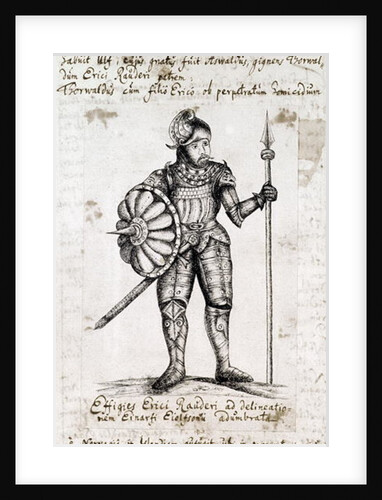 habuit Ulf, cujus gnatus fuit Aswaldus, gignens Thorwal,
dum Erici Rauderi patrem:
Thorwaldus cum filio Erico ob perpetratum homicidium
Effigies Erici Rauderi ad delineatio
nem Einarfi Eiolfsonii adumbrata